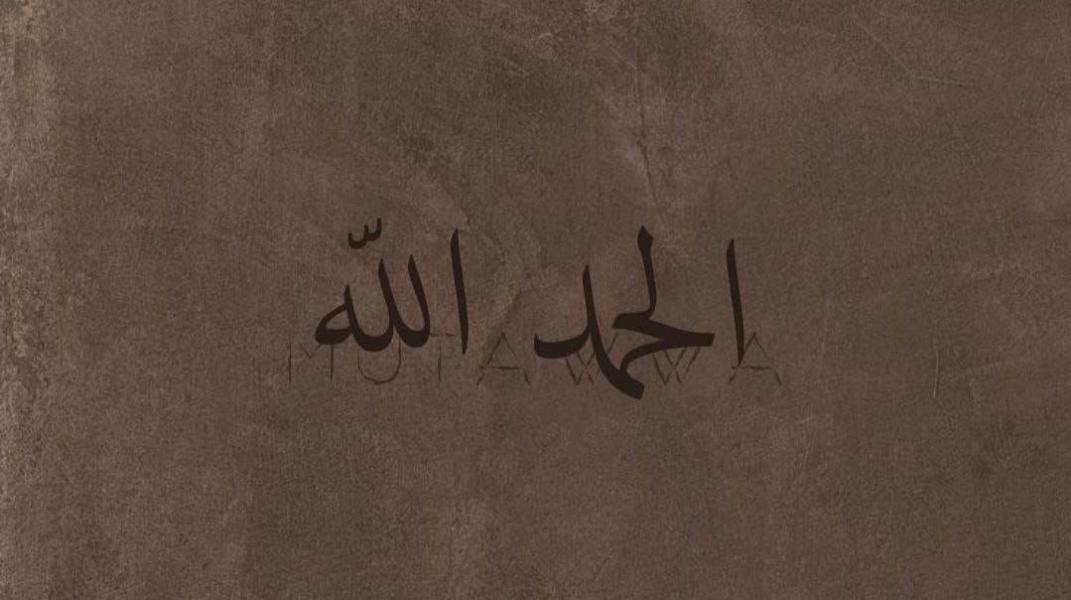 الحمد اللّه
MUTAWWA